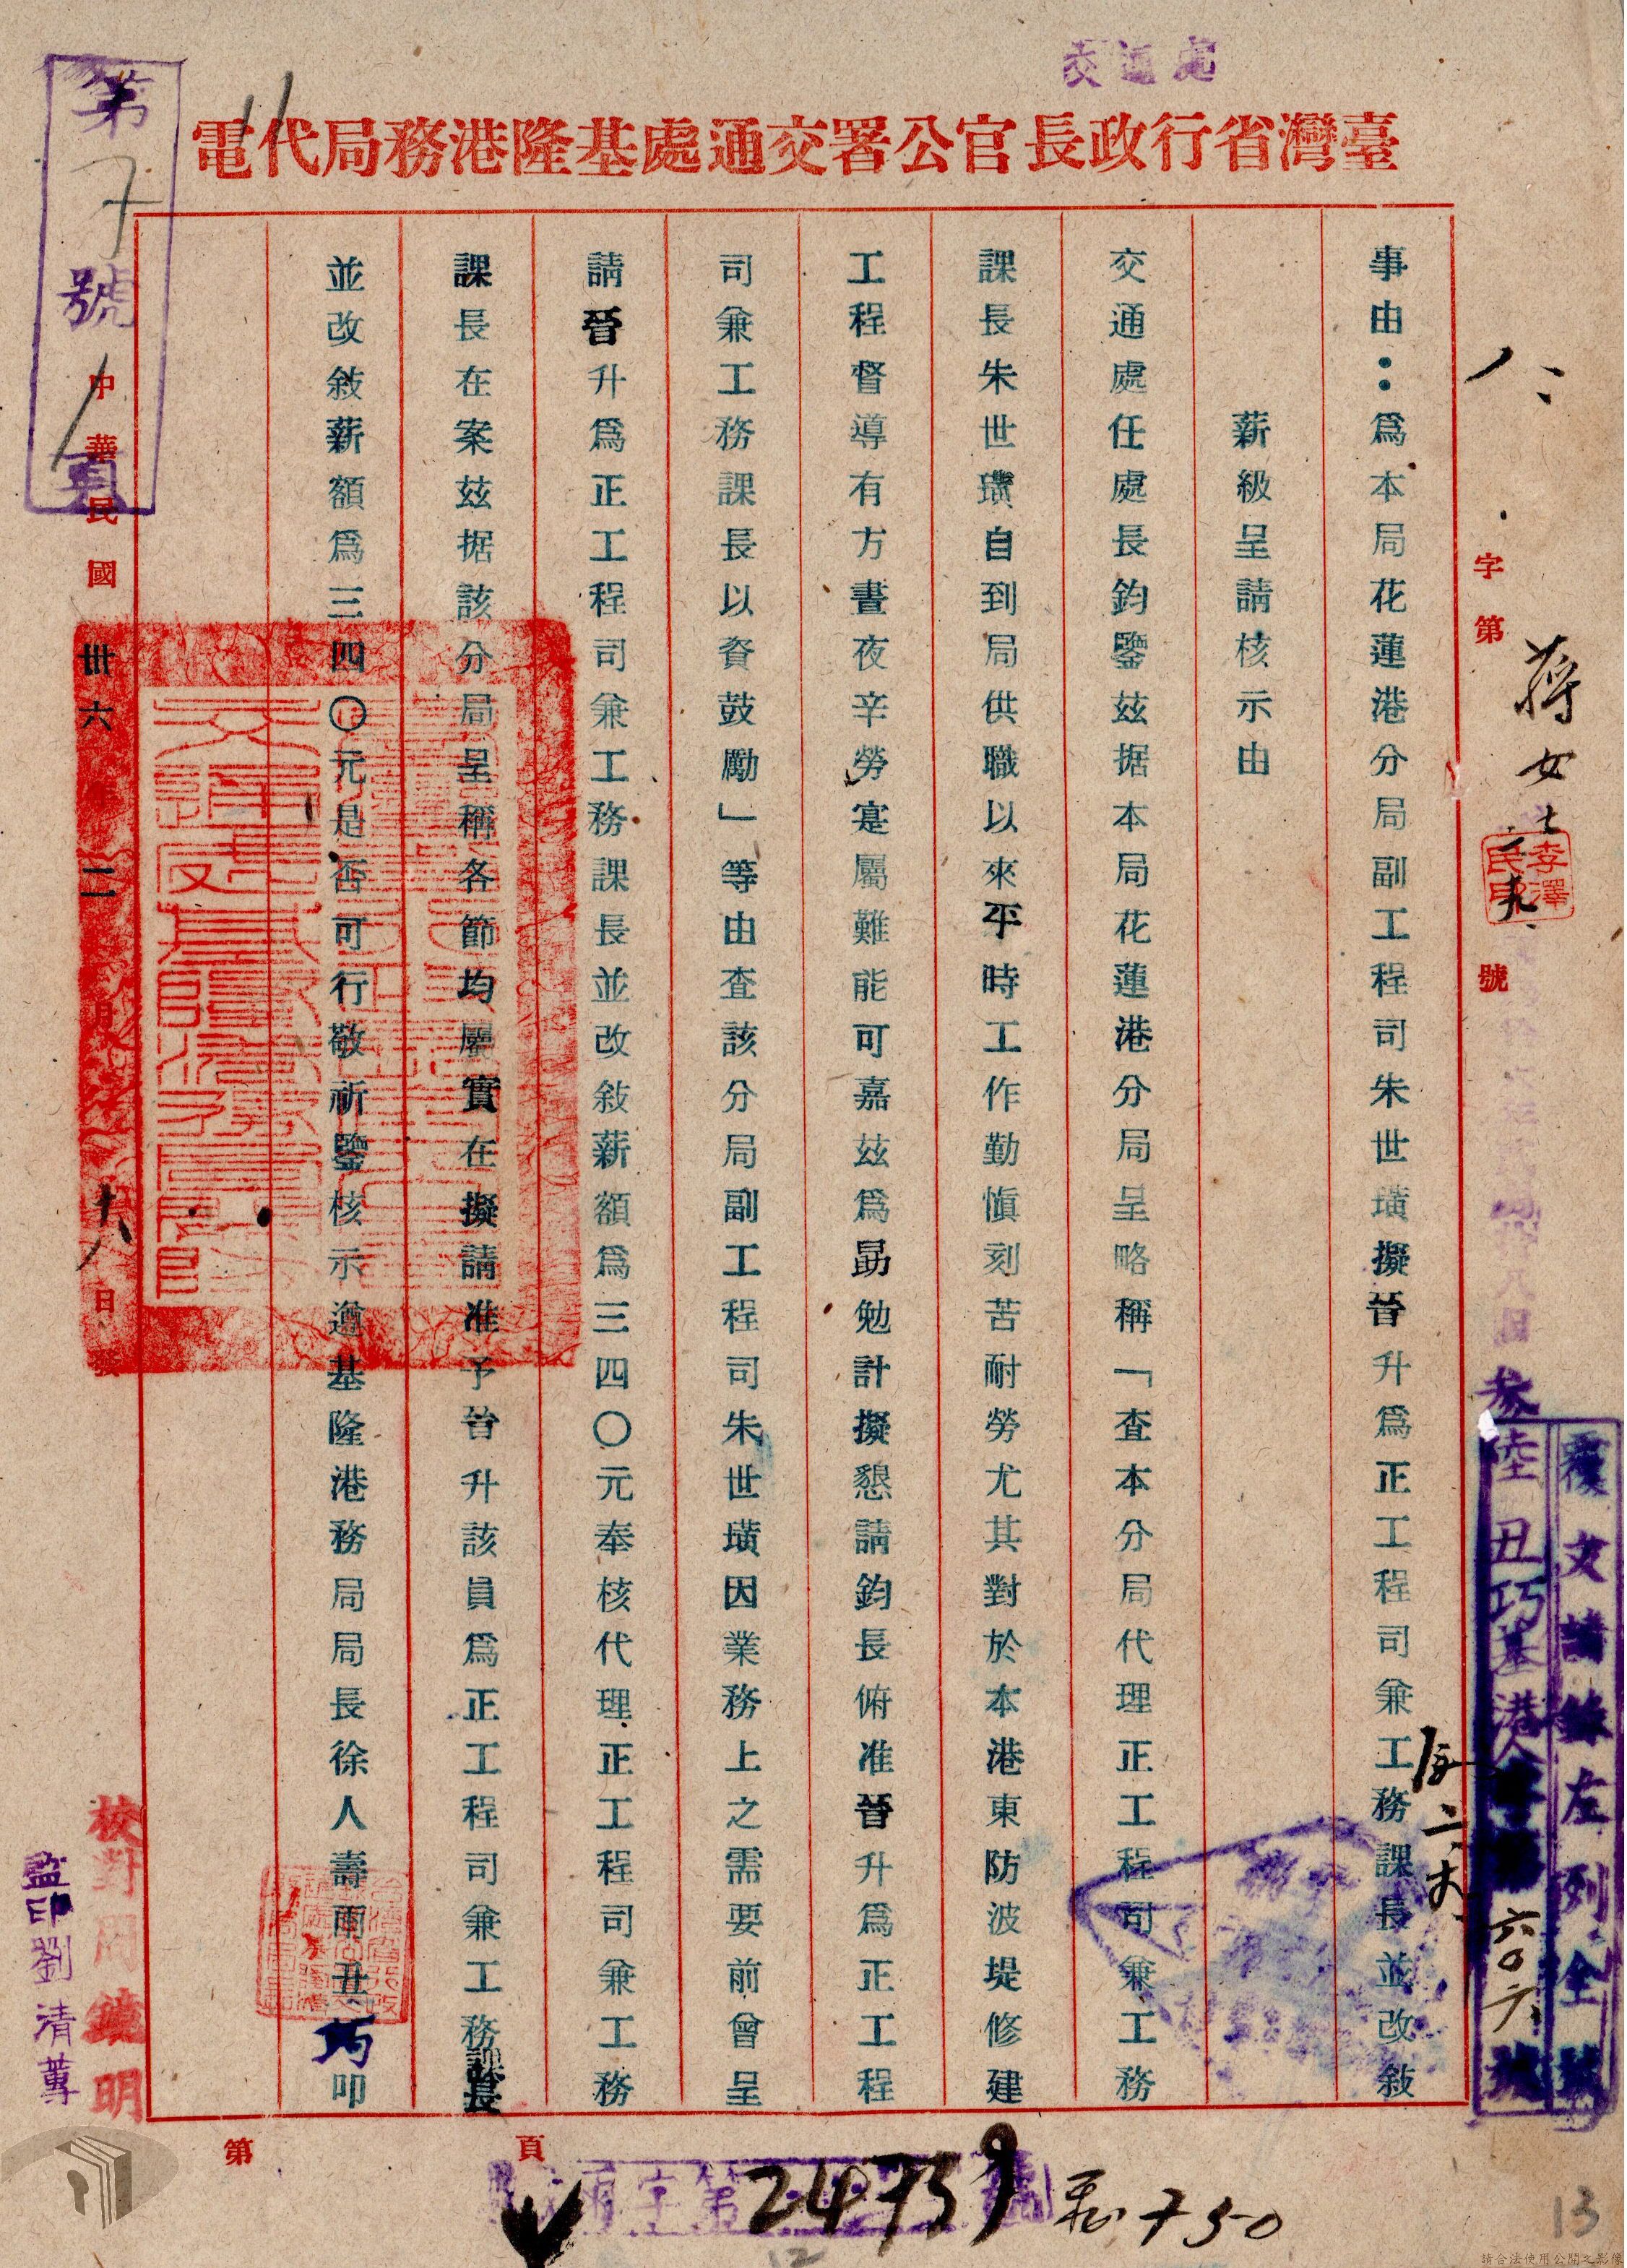 交通處
臺灣省行政長官公署交通處基隆港務局代電
字第
號
事由：為本局花蓮港分局副工程司朱世璜擬晉升為正工程司兼工務課長並改敘
薪級呈請核示由
交通處任處長鈞鑒茲据本局花蓮港分局呈略稱「查本分局代理正工程司兼工務
課長朱世璜自到局供職以來平時工作勤慎刻苦耐勞尤其對於本港東防波堤修建
工程督導有方晝夜辛勞寔屬難能可嘉茲為勗勉計擬懇請鈞長俯准晉升為正工程
司兼工務課長以資鼓勵」等由查該分局副工程司朱世璜因業務上之需要前曾呈
請晉升為正工程司兼工務課長並改敘薪額為三四〇元奉核代理正工程司兼工務
課長在案茲据該分局呈稱各節均屬實在擬請准予晉升該員為正工程司兼工務課長
並改敘薪額為三四〇元是否可行敬祈鑒核示遵基隆港務局局長徐人壽丑巧叩
中華民國卅六年二月十八日
覆文請錄左列全號
陸丑巧基港
六〇六
號
第
號
頁
李澤民
校對周鎮明
監印劉清
第
頁
字第24759號
750
13
請合法使用公開之影像